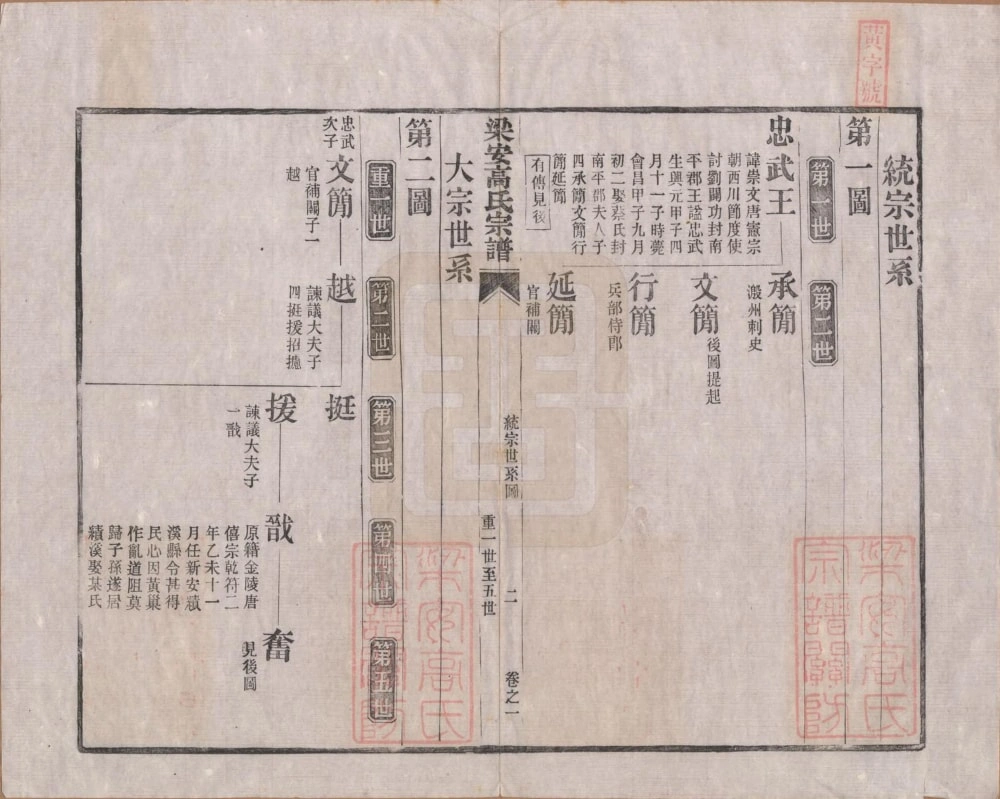 黃字號
統宗世系
第一圖
第一世
第二世
忠武王
諱崇文唐憲宗
朝西川節度使
討劉闢功封南
平郡王諡忠武
生興元甲子四
月十一子時薨
會昌甲子九月
初二娶蔡氏封
南平郡夫人子
四承簡文簡行
簡延簡
有傳見後
承簡
刺史
文簡
後圖提起
行簡
兵部侍郎
延簡
官補闕
梁安高氏宗譜
統宗世系圖
重一世至五世
二
卷之一
大宗世系
第二圖
重一世
第二世
第三世
第四世
第五世
忠武
次子
文簡
官補闕子一
越
越
諫議大夫子
四挺援招
挺
援
諫議大夫子
一戩
戩
原籍金陵唐
僖宗乾符二
年乙未十一
月任新安績
溪縣令甚得
民心因黃巢
作亂道阻莫
歸子孫遂居
績溪娶某氏
奮
見後圖
梁安高氏
宗譜關防
梁安高氏
宗譜關防